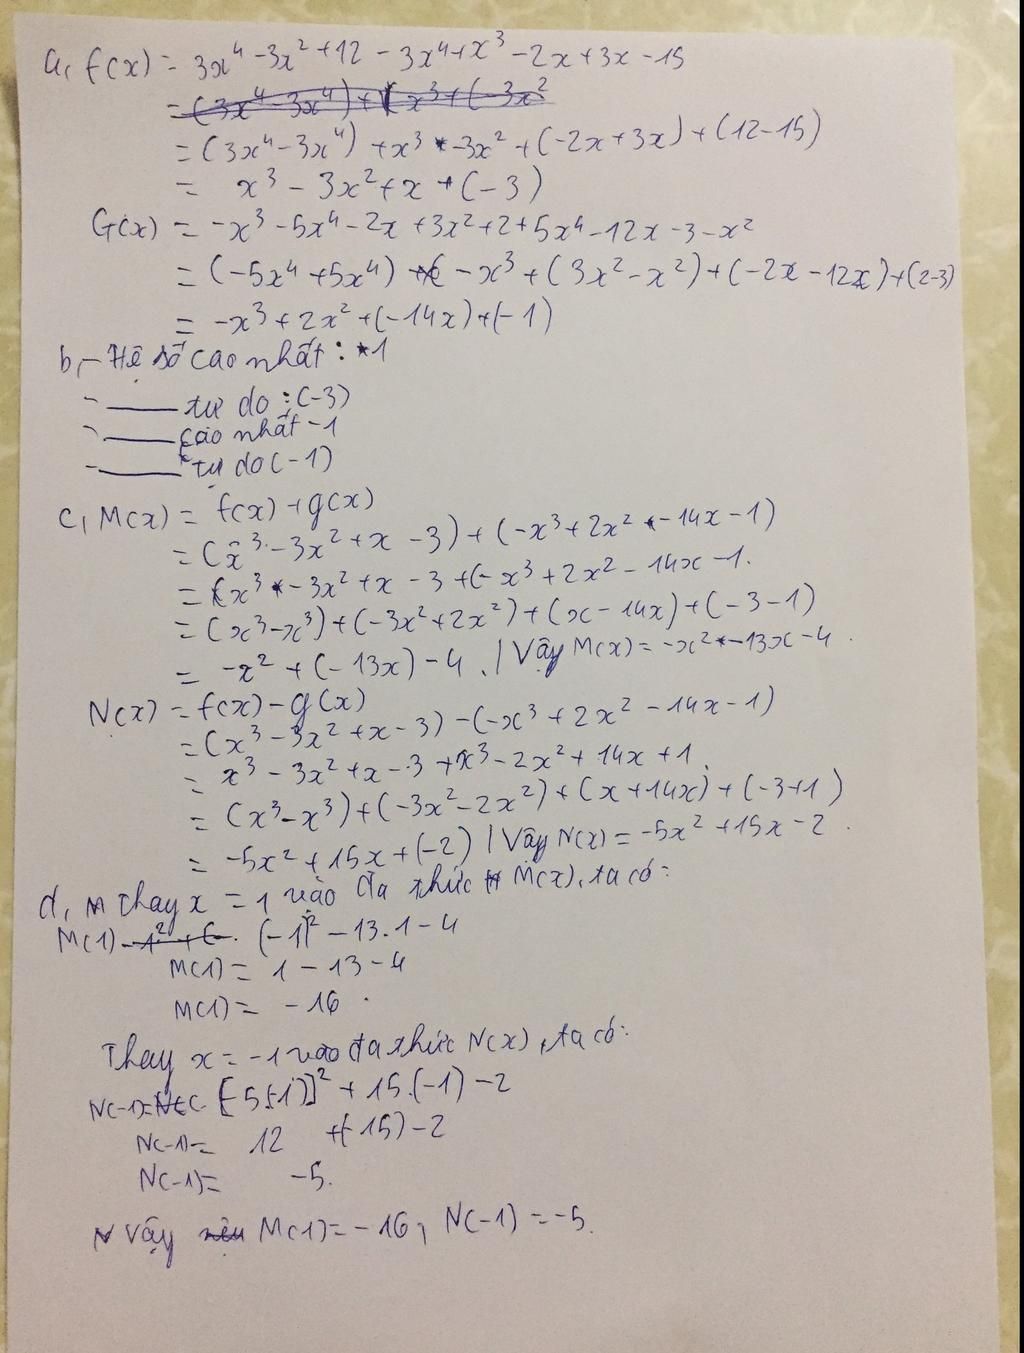 a, f(x) = 3x⁴ - 3x² + 12 - 3x⁴ + x³ - 2x + 3x - 15
= (3x⁴ - 3x⁴) + x³ - 3x² + (-2x + 3x) + (12 - 15)
= x³ - 3x² + x + (-3)
G(x) = -x³ - 5x⁴ - 2x + 3x² + 2 + 5x⁴ - 12x - 3 - x²
= (-5x⁴ + 5x⁴) + - x³ + (3x² - x²) + (-2x - 12x) + (2-3)
= -x³ + 2x² + (-14x) + (-1)
b, - Hệ số cao nhất: 1
- ____ tự do : (-3)
- ____ cao nhất -1
- ____ tự do (-1)
c, M(x) = f(x) + g(x)
= (x³ - 3x² + x - 3) + (-x³ + 2x² - 14x - 1)
= x³ - 3x² + x - 3 + (- x³ + 2x² - 14x - 1.
= (x³ - x³) + (-3x² + 2x²) + (x - 14x) + (-3 - 1)
= -x² + (-13x) - 4 . | Vậy M(x) = -x² - 13x - 4 .
N(x) = f(x) - g(x)
= (x³ - 3x² + x - 3) - (-x³ + 2x² - 14x - 1)
= x³ - 3x² + x - 3 + x³ - 2x² + 14x + 1.
= (x³ - x³) + (-3x² - 2x²) + (x + 14x) + (-3+1)
= -5x² + 15x + (-2) | Vậy N(x) = -5x² + 15x - 2 .
d, Thay x = 1 vào đa thức M(x), ta có:
M(1) (-1)² - 13.1 - 4
M(1) = 1 - 13 - 4
M(1) = -16 .
Thay x = -1 vào đa thức N(x), ta có:
N(-1)= [-5(-1)]² + 15.(-1) - 2
N(-1) = 12 + (-15) - 2
N(-1) = -5.
Vậy M(1) = -16, N(-1) = -5.